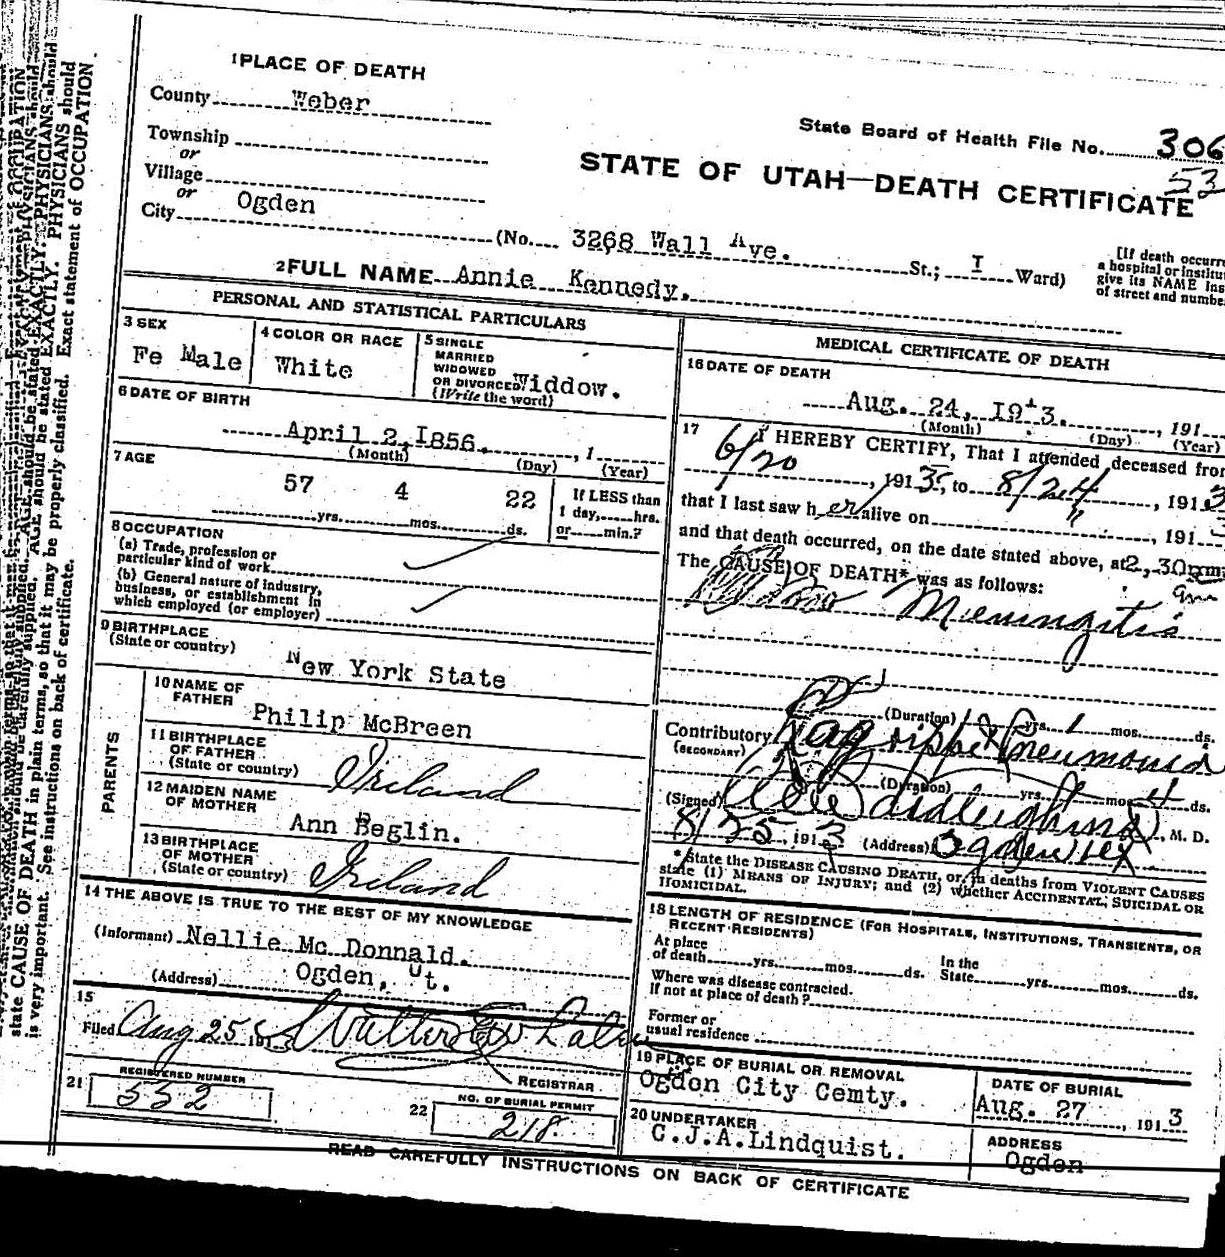 1 PLACE OF DEATH
County Weber
State Board of Health File No. 306
53
Township
or
Village
or
City Ogden
STATE OF UTAH—DEATH CERTIFICATE
(No. 3268 Wall Ave. St.; I Ward)
[If death occurr
a hospital or institu
give its NAME ins
of street and numbe
2 FULL NAME Annie Kennedy.
PERSONAL AND STATISTICAL PARTICULARS
3 SEX
Fe Male
4 COLOR OR RACE
White
5 SINGLE
MARRIED
WIDOWED
OR DIVORCED Widdow.
(Write the word)
6 DATE OF BIRTH
April 2, I856. , 1
(Month) (Day) (Year)
7 AGE
57 yrs. 4 mos. 22 ds.
If LESS than
1 day, hrs.
or min.?
8 OCCUPATION
(a) Trade, profession or
particular kind of work
(b) General nature of industry,
business, or establishment in
which employed (or employer)
9 BIRTHPLACE
(State or country)
New York State
PARENTS
10 NAME OF
FATHER
Philip McBreen
11 BIRTHPLACE
OF FATHER
(State or country)
Ireland
12 MAIDEN NAME
OF MOTHER
Ann Beglin.
13 BIRTHPLACE
OF MOTHER
(State or country)
Ireland
14 THE ABOVE IS TRUE TO THE BEST OF MY KNOWLEDGE
(Informant) Nellie Mc Donnald.
(Address) Ogden, Ut.
15
Filed Aug 25 1913 Walter
REGISTRAR
21 REGISTERED NUMBER
552
22 NO. OF BURIAL PERMIT
218.
MEDICAL CERTIFICATE OF DEATH
16 DATE OF DEATH
Aug. 24, I913. , 191
(Month) (Day) (Year)
17 I HEREBY CERTIFY, That I attended deceased from
6/20, 1913, to 8/24, 1913
that I last saw her alive on " , 191
and that death occurred, on the date stated above, at 2,30 m
am
The CAUSE OF DEATH* was as follows:
Meningitis
(Duration) yrs. 1 mos. ds.
Contributory Lagrippe & Pneumonia
(SECONDARY)
(Duration) yrs. mos. 4 ds.
(Signed) , M. D.
8/25, 1913 (Address) Ogden
* State the DISEASE CAUSING DEATH, or, in deaths from VIOLENT CAUSES
state (1) MEANS OF INJURY; and (2) whether ACCIDENTAL, SUICIDAL OR
HOMICIDAL.
18 LENGTH OF RESIDENCE (FOR HOSPITALS, INSTITUTIONS, TRANSIENTS, OR
RECENT RESIDENTS)
At place
of death yrs. mos. ds.
In the
State yrs. mos. ds.
Where was disease contracted.
If not at place of death?
Former or
usual residence
19 PLACE OF BURIAL OR REMOVAL
Ogden City Cemty.
DATE OF BURIAL
Aug. 27 , 1913
20 UNDERTAKER
C.J.A.Lindquist.
ADDRESS
Ogden
READ CAREFULLY INSTRUCTIONS ON BACK OF CERTIFICATE
AGE should be stated EXACTLY. PHYSICIANS should
state CAUSE OF DEATH in plain terms, so that it may be properly classified. Exact statement of OCCUPATION
is very important. See instructions on back of certificate.